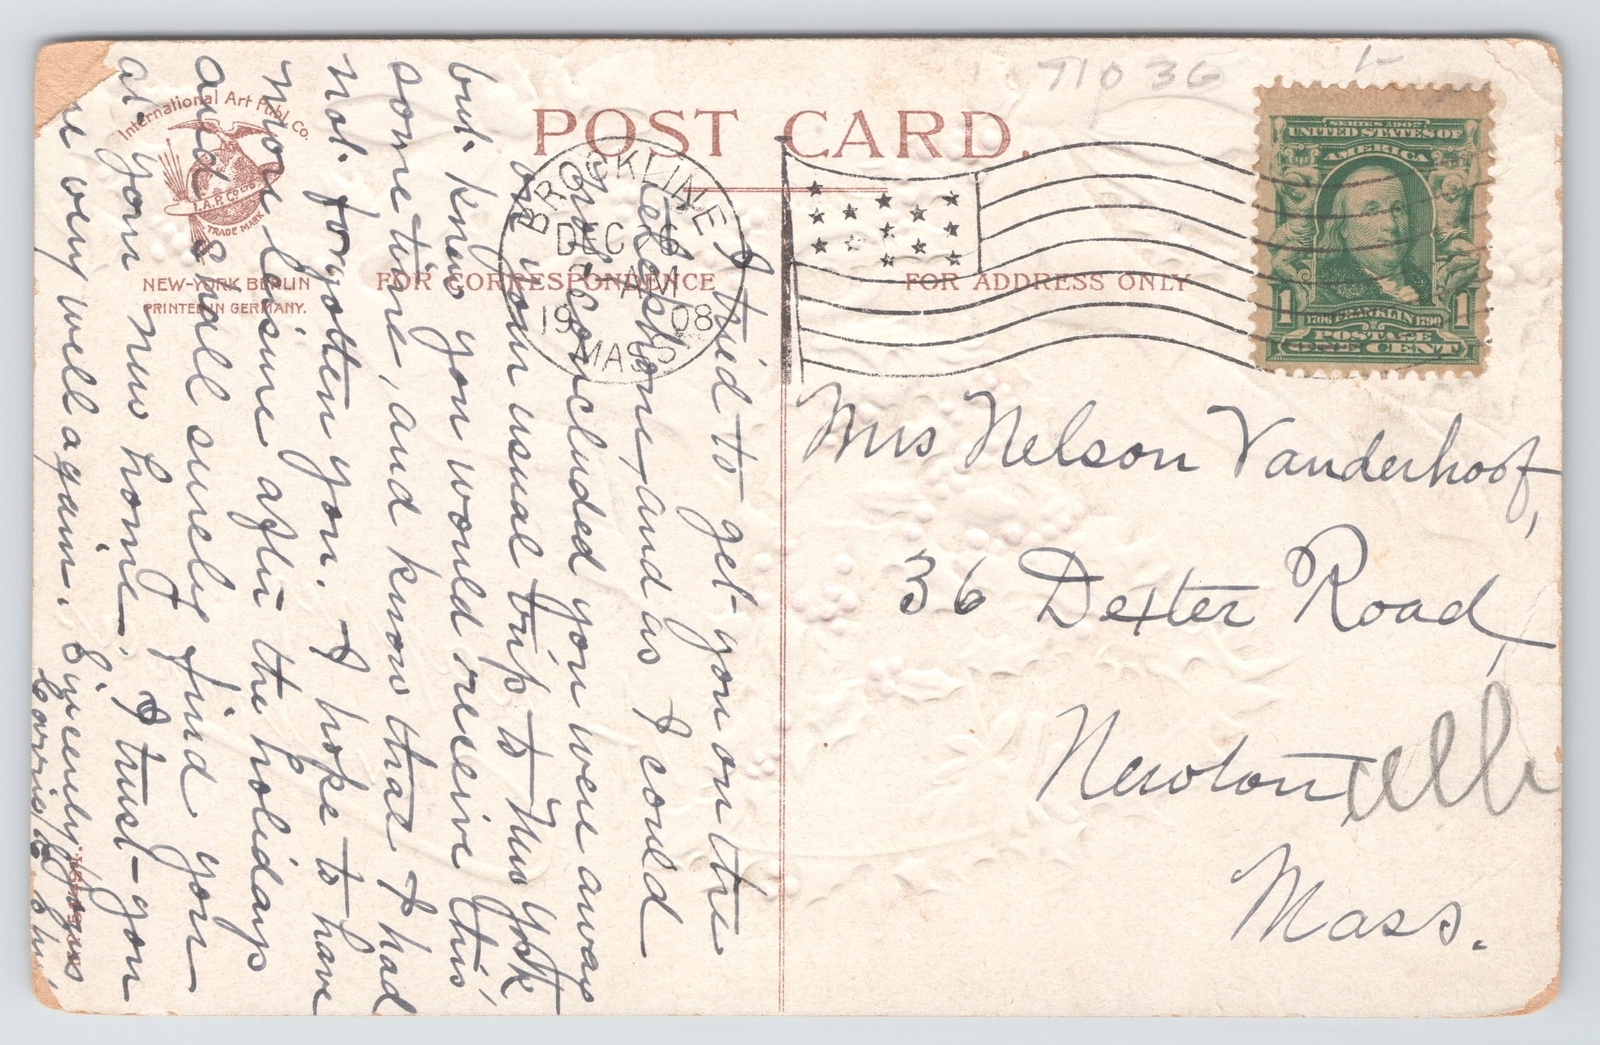 71036
International Art Publ. Co.
I.A.P.Co.
TRADE MARK
NEW-YORK BERLIN
PRINTED IN GERMANY.
POST CARD.
FOR CORRESPONDENCE
FOR ADDRESS ONLY
BROOKLINE
DEC
AM
19 08
MASS
SERIES 1902
UNITED STATES OF
AMERICA
1 1706 FRANKLIN 1790 1
POSTAGE
ONE CENT
I tried to get you on the
telephone, and as I could
not concluded you were away
on your usual trip to New York
but knew you would receive this
some time, and know that I had
not forgotten you. I hope to have
more leisure after the holidays
and shall surely find you
at your new home. I trust you
are very well again. Sincerely yours
Carrie
Mrs Nelson Vanderhoof,
36 Dexter Road,
Newtonville
Mass.